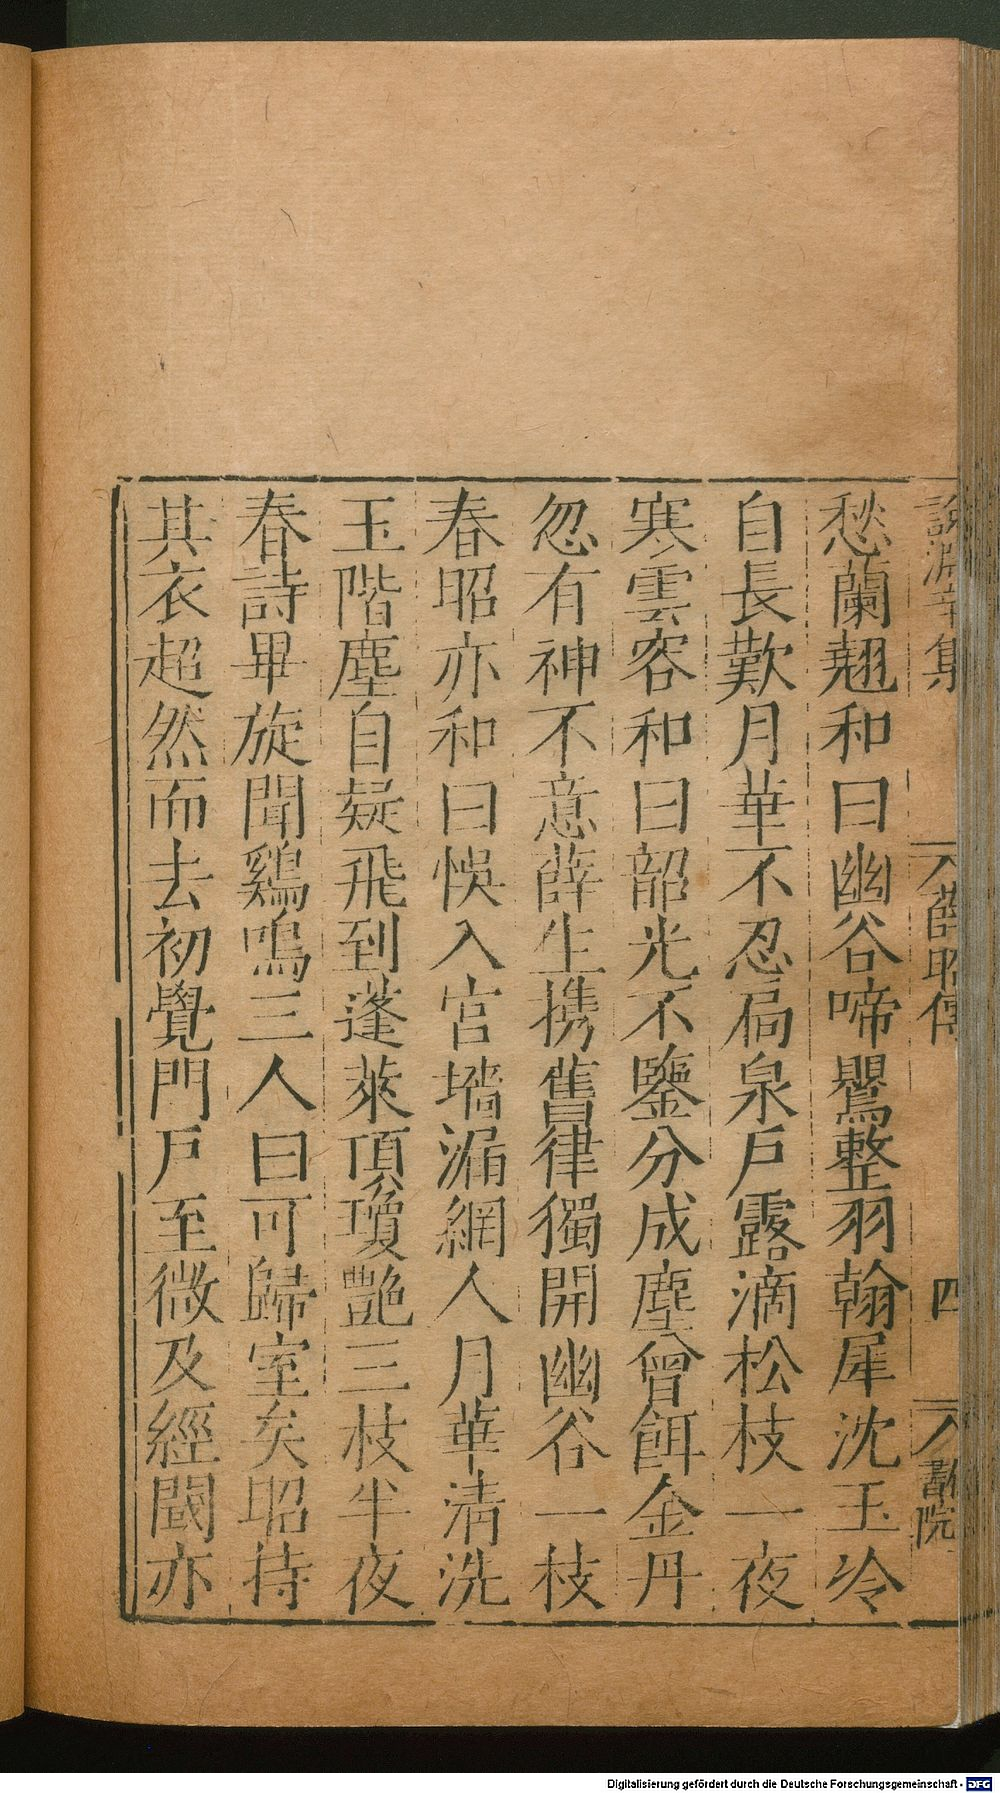 說淵辛集
薛昭傳
四
書院
愁蘭翹和曰幽谷啼鸎整羽翰犀沈玉冷
自長歎月華不忍扃泉戶露滴松枝一夜
寒雲容和曰韶光不鑒分成塵曾餌金丹
忽有神不意薛生携舊律獨開幽谷一枝
春昭亦和曰悞入宫墻漏網人月華清洗
玉階塵自疑飛到蓬萊頂瓊艷三枝半夜
春詩畢旋聞鷄鳴三人曰可歸室矣昭持
其衣超然而去初覺門戶至微及經閾亦
Digitalisierung gefördert durch die Deutsche Forschungsgemeinschaft - DFG